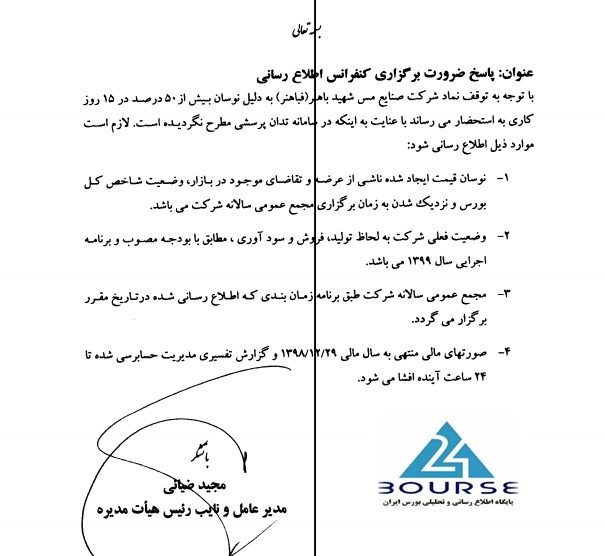 بسمه تعالی
عنوان: پاسخ ضرورت برگزاری کنفرانس اطلاع رسانی
با توجه به توقف نماد شرکت صنایع مس شهید باهنر(فباهنر) به دلیل نوسان بیش از ۵۰ درصد در ۱۵ روز
کاری به استحضار می رساند با عنایت به اینکه در سامانه تدان پرسشی مطرح نگردیده است. لازم است
موارد ذیل اطلاع رسانی شود:
۱- نوسان قیمت ایجاد شده ناشی از عرضه و تقاضای موجود در بازار، وضعیت شاخص کل
بورس و نزدیک شدن به زمان برگزاری مجمع عمومی سالانه شرکت می باشد.
۲- وضعیت فعلی شرکت به لحاظ تولید، فروش و سود آوری ، مطابق با بودجه مصوب و برنامه
اجرایی سال ۱۳۹۹ می باشد.
۳- مجمع عمومی سالانه شرکت طبق برنامه زمان بندی که اطلاع رسانی شده درتاریخ مقرر
برگزار می گردد.
۴- صورتهای مالی منتهی به سال مالی ۱۳۹۸/۱۲/۲۹ و گزارش تفسیری مدیریت حسابرسی شده تا
۲۴ ساعت آینده افشا می شود.
باتشکر
مجید ضیائی
مدیر عامل و نایب رئیس هیأت مدیره
24
BOURSE
پایگاه اطلاع رسانی و تحلیلی بورس ایران